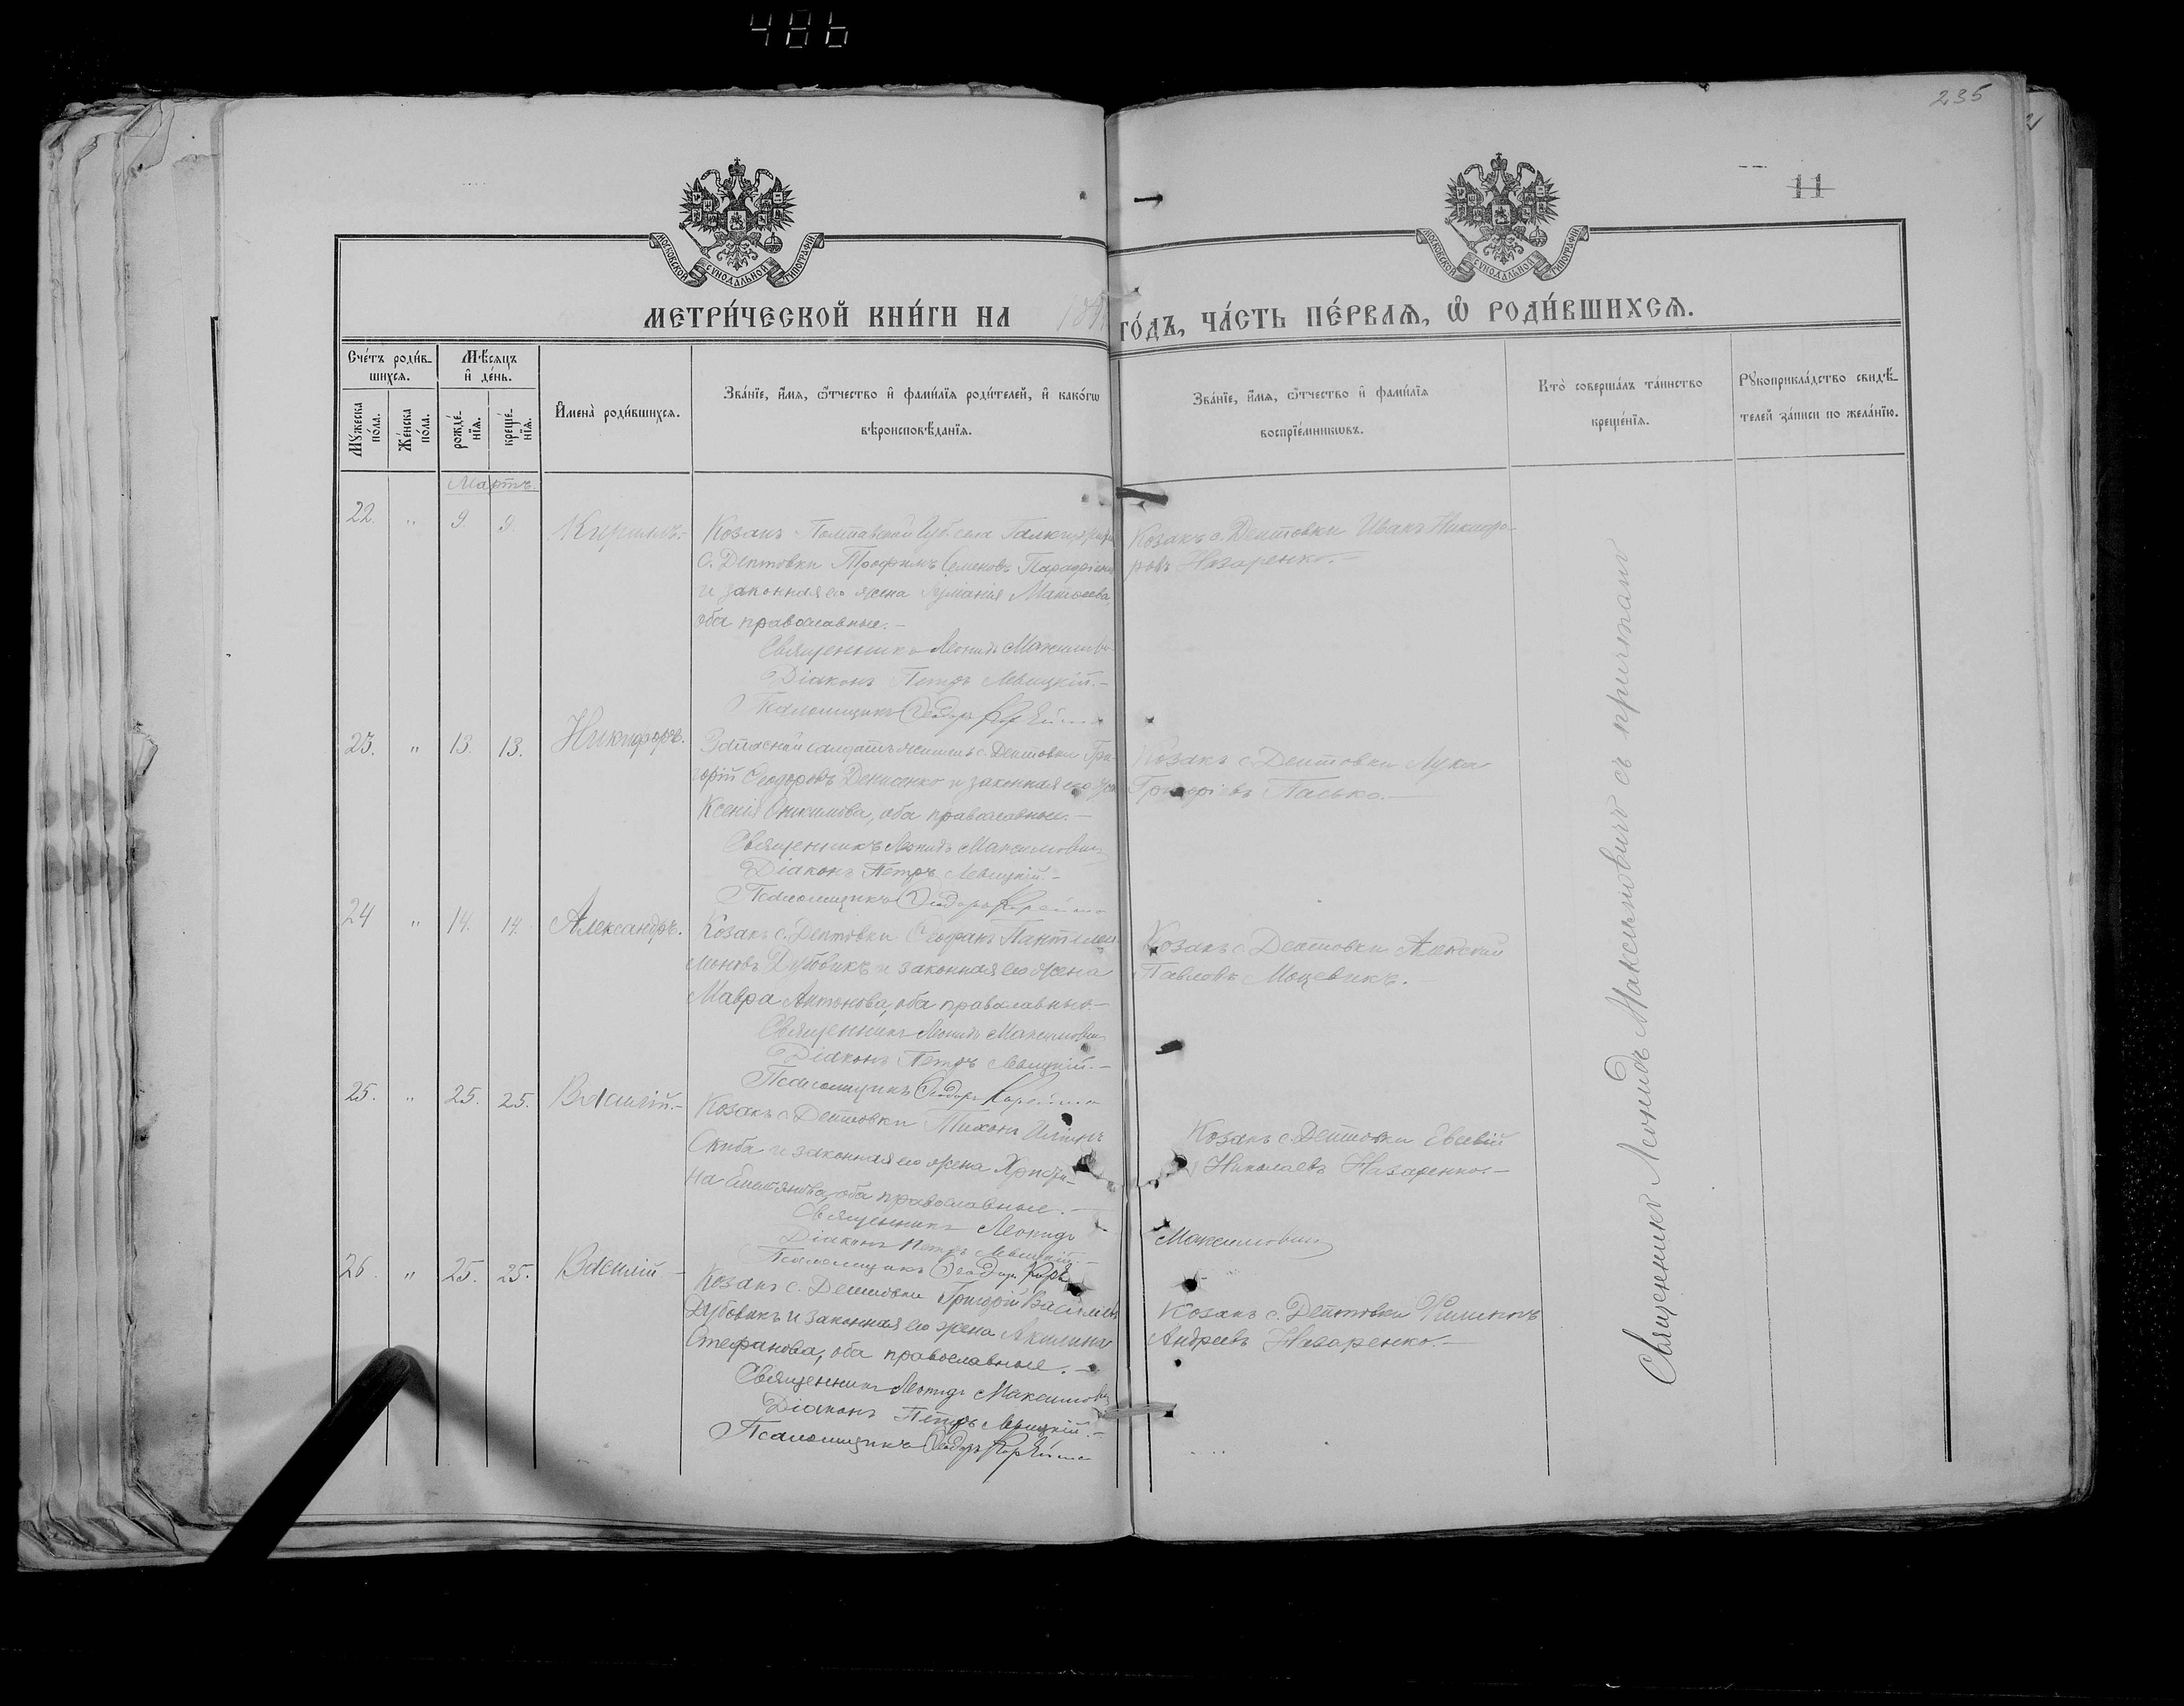 486
235
11
МОСКОВСКОЙ СУНОДАЛЬНОЙ ТИПОГРАФІИ
МОСКОВСКОЙ СУНОДАЛЬНОЙ ТИПОГРАФІИ
МЕТРИ́ЧЕСКОЙ КНИ́ГИ НА 189
ГО́ДЪ, ЧА́СТЬ ПЕ́РВАѦ, Ѿ РОДИ́ВШИХСѦ.
Сче́тъ роди́в-
шихсѧ.
Мѣ́сяцъ
и де́нь.
Мꙋ́жеска
по́ла.
Же́нска
по́ла.
рожде́-
нїѧ.
креще́-
нїѧ.
Имена̀ роди́вшихсѧ.
Зва́нїе, и́мѧ, ѻ́тчество и фами́лїѧ роди́телей, и како́гѡ
вѣроисповѣ́данїѧ.
Зва́нїе, и́мѧ, ѻ́тчество и фами́лїѧ
воспрїе́мникѡвъ.
Кто̀ соверша́лъ та́инство
креще́нїѧ.
Рꙋкоприкла́дство свидѣ́-
телей за́писи по жела́нїю.
Мартъ.
22. " 9. 9. Кириллъ.
Козакъ Полтавской Губ. села Галки,
С. Дептовки Трофимъ Семеновъ
и законная его жена Матѳеева,
оба православные.-
Священникъ Леонидъ Максимович
Діаконъ Петръ Левицкій.-
Псаломщикъ Ѳеодоръ
Козакъ с. Дептовки Иванъ Никифо-
ровъ Назаренко.-
23. " 13. 13. Никифоръ.
Запасной солдатъ житель с. Дептовки Гри-
горій Ѳеодоровъ Денисенко и законная его жена
Ксенія Онисимова, оба православные.-
Священникъ Леонидъ Максимович
Діаконъ Петръ Левицкій.-
Псаломщикъ Ѳеодоръ
Козакъ с. Дептовки Лука
Григоріевъ Пасько.-
24 " 14. 14. Александръ.
Козакъ с. Дептовки Ѳеофанъ Пантелеи-
моновъ Дубовикъ и законная его жена
Мавра Антонова, оба православные.-
Священникъ Леонидъ Максимович
Діаконъ Петръ Левицкій.-
Псаломщикъ Ѳеодоръ
Козакъ с. Дептовки Алексѣй
Павловъ Моцевикъ.
25. " 25. 25. Василій.-
Козакъ с. Дептовки Тихонъ Ильинъ
Скиба и законная его жена Христи-
на оба православные.-
Священникъ Леонидъ Максимович
Діаконъ Петръ Левицкій.-
Псаломщикъ Ѳеодоръ
Козакъ с. Дептовки Евсевій
Николаевъ Назаренко.-
26. " 25. 25. Василій.-
Козакъ с. Дептовки Григорій Василіевъ
Дубовикъ и законная его жена Акилина
Стефанова, оба православные.-
Священникъ Леонидъ Максимович
Діаконъ Петръ Левицкій.-
Псаломщикъ Ѳеодоръ
Козакъ с. Дептовки Филипъ
Андреевъ Назаренко.-
Священникъ Леонидъ Максимовичъ съ причтомъ